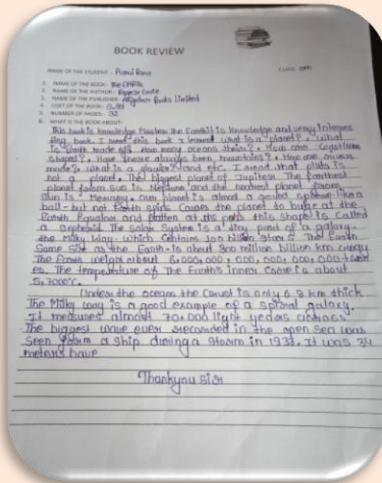 BOOK REVIEW
NAME OF THE STUDENT :- Rana
CLASS
1. NAME OF THE BOOK:- The EARTH
2. NAME OF THE AUTHOR:-
3. NAME OF THE PUBLISHER:- Books Limited
4. COST OF THE BOOK:-
5. NUMBER OF PAGES:- 32
6. WHAT IS THE BOOK ABOUT:-
This book is knowledge The Earth it is knowledge and
book. I this book. I learned what is a planet?. What
is Earth made of?. How many oceans there?. How are Coastlines
shaped?. Have there always been mountains?. How are
made?. What is a and etc. I read that pluto is
not a planet. The biggest planet of is Jupiter. The farthest
planet from sun is Neptune and the nearest planet from
Sun is Mercury. Our planet is almost a sphere like a
ball - but not Earth spin. Causes the planet to bulge at the
Equator and flatten at the this shape is called
a The solar System is a tiny part of a galaxy.
the Milky Way - which Contains 100 billion stars. That
Same size as the Earth is about 300 million billion
The weight about 6,000,000,000,000,000,000,000
The temperature of The Earth's inner Core is about

Under the ocean, the Crust is only 6.8 km thick
The Milky way is a good example of a spiral galaxy.
It measures almost 70,000 light years across.
The biggest wave ever recorded in the open sea was
seen from a ship during a storm in 1933. It was 34
meters
Thankyou sir